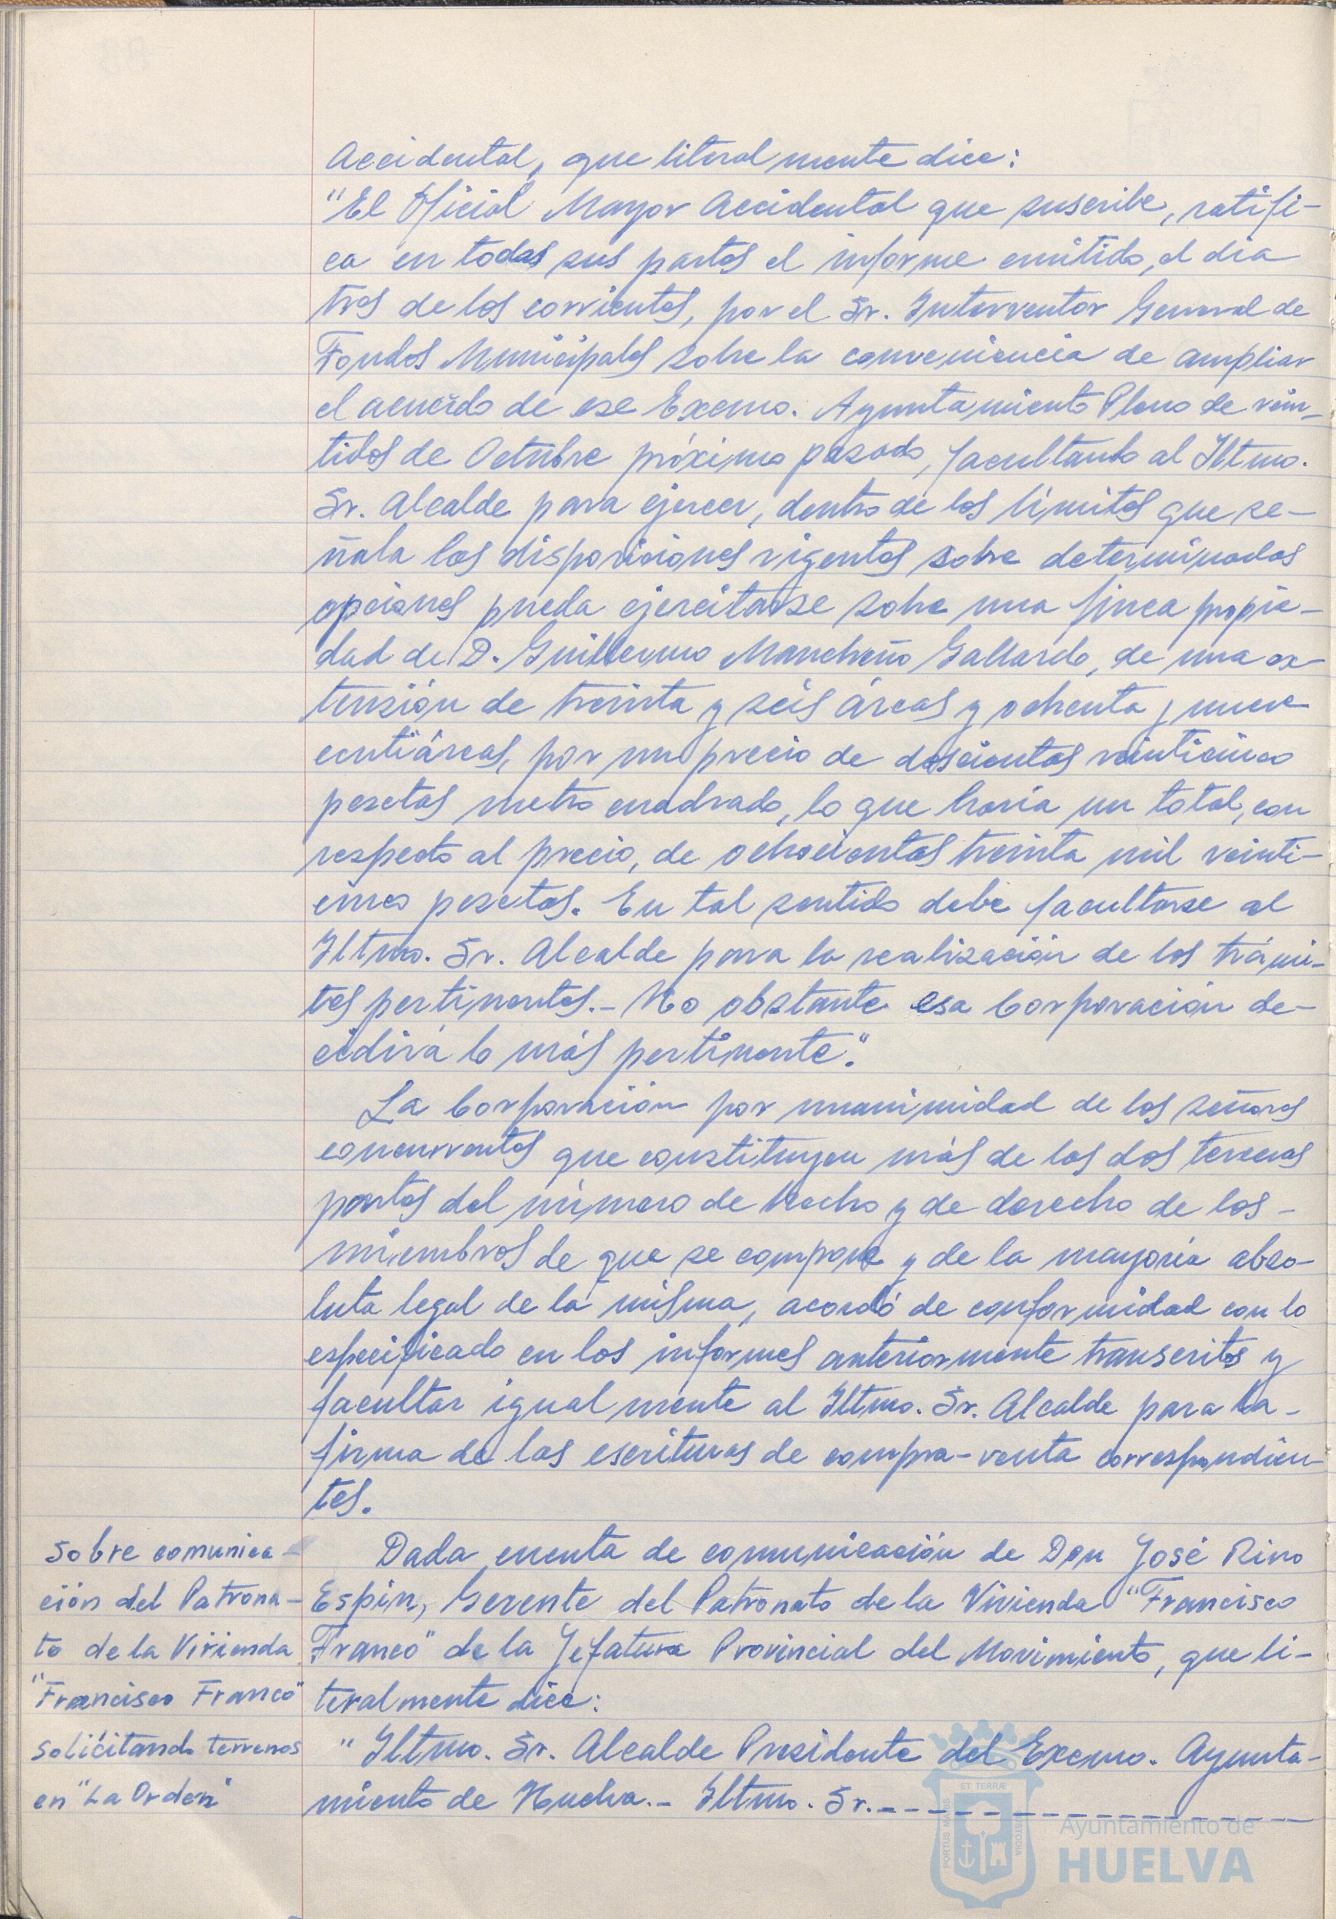 Accidental, que literalmente dice:
"El Oficial Mayor Accidental que suscribe, ratifi-
ca en todas sus partes el informe emitido, el dia
tres de los corrientes, por el Sr. Interventor General de
Fondos Municipales sobre la conveniencia de ampliar
el acuerdo de ese Excmo. Ayuntamiento Pleno de vein-
tidos de Octubre próximo pasado, facultando al Iltmo.
Sr. Alcalde para ejercer, dentro de los límites que se-
ñala las disposiciones vigentes sobre determinadas
opciones pueda ejercitarse sobre una finca propie-
dad de D. Guillermo Mancheño Gallardo, de una ex-
tensión de treinta y seis áreas y ochenta y nueve
centiáreas, por un precio de doscientas veinticinco
pesetas metro cuadrado, lo que haría un total, con
respecto al precio, de ochocientas treinta mil veinti-
cinco pesetas. En tal sentido debe facultarse al
Iltmo. Sr. Alcalde para la realización de los trámi-
tes pertinentes.- No obstante esa Corporación de-
cidirá lo más pertinente".
La Corporación por unanimidad de los señores
concurrentes que constituyen más de las dos terceras
partes del número de hecho y de derecho de los-
miembros de que se compone y de la mayoría abso-
luta legal de la misma, acordó de conformidad con lo
especificado en los informes anteriormente transcritos y
facultar igualmente al Iltmo. Sr. Alcalde para la-
firma de las escrituras de compra-venta correspondien-
tes.
Sobre comunica-
ción del Patrona-
to de la Vivienda
"Francisco Franco"
solicitando terrenos
en "La Orden"
Dada cuenta de comunicación de Don José Rino
Espin, Gerente del Patronato de la Vivienda "Francisco
Franco" de la Jefatura Provincial del Movimiento, que li-
teralmente dice:
"Iltmo. Sr. Alcalde Presidente del Excmo. Ayunta-
miento de Huelva.- Iltmo. Sr.----------
ET TERRÆ
PORTUS MARIS
CUSTODIA
Ayuntamiento de
HUELVA